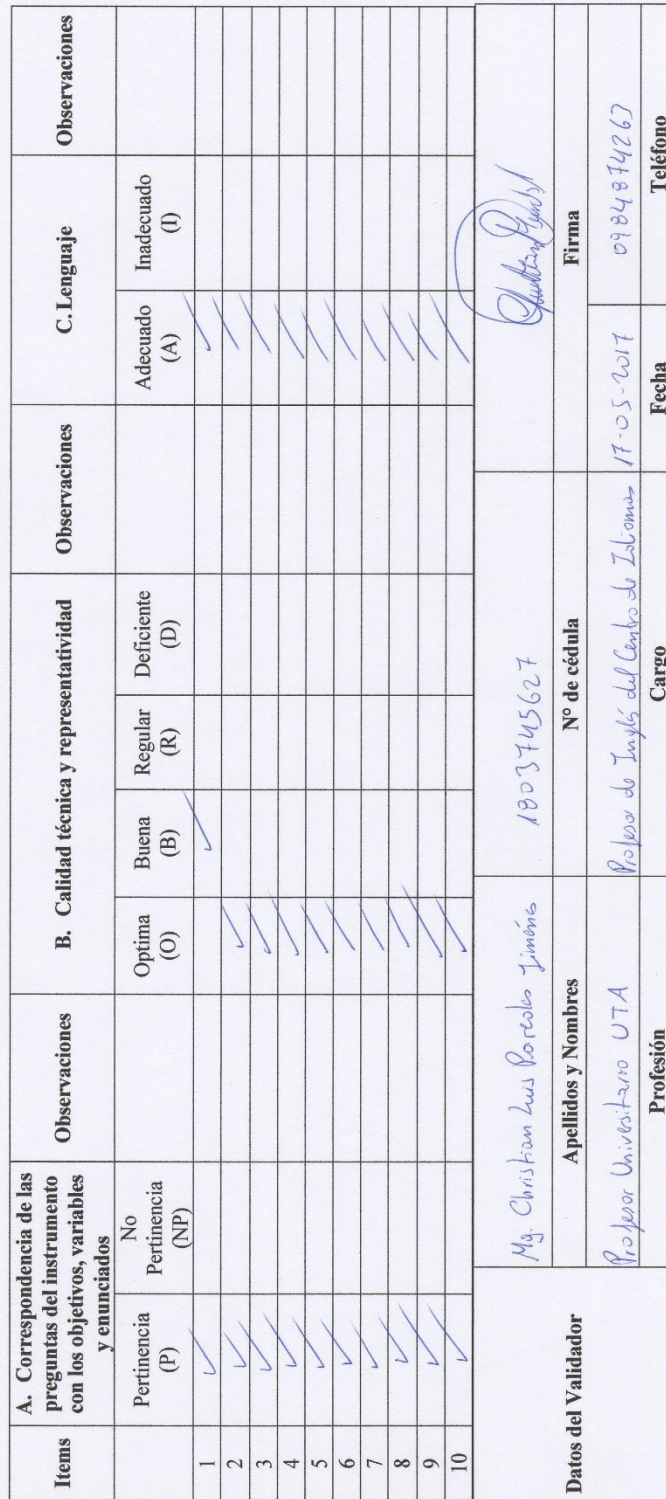 Items
A. Correspondencia de las
preguntas del instrumento
con los objetivos, variables
y enunciados
Observaciones
B. Calidad técnica y representatividad
Observaciones
C. Lenguaje
Observaciones
Pertinencia
(P)
No
Pertinencia
(NP)
Optima
(O)
Buena
(B)
Regular
(R)
Deficiente
(D)
Adecuado
(A)
Inadecuado
(I)
1
2
3
4
5
6
7
8
9
10
Datos del Validador
Mg. Christian Luis Paredes Jiménes
1803745627
Apellidos y Nombres
N° de cédula
Firma
Profesor Universitario UTA
Profesor de Inglés del Centro de Idiomas
17-05-2017
0984874263
Profesión
Cargo
Fecha
Teléfono